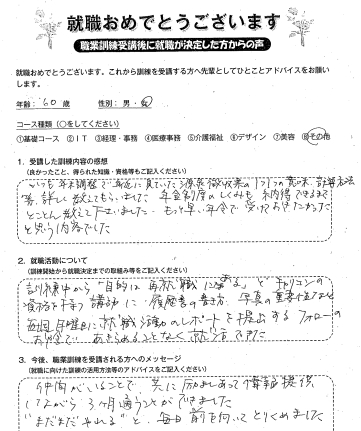 就職おめでとうございます
職業訓練受講後に就職が決定した方からの声
就職おめでとうございます。これから訓練を受講する方へ先輩としてひとことアドバイスをお願い
します。
年齢:60歳 性別:男・女
コース種類(○をしてください)
①基礎コース ②IT ③経理・事務 ④医療事務 ⑤介護福祉 ⑥デザイン ⑦美容 ⑧その他
1.受講した訓練内容の感想
(良かったこと、得られた知識・資格等もご記入ください)
いつも年末調整で 見ていた源泉徴収票の1つ1つの意味、計算方法
等、詳しく教えてもらいました。年金制度のしくみも納得できるまで
とことん教えて下さいました。もっと早い年令で受けておきたかった
と思う内容でした
2.就職活動について
(訓練開始から就職決定までの取組み等をご記入ください)
訓練中から"目的は再就職にある"とキャリコンの
資格を持つ講師に履歴書の書き方、写真の重要性など
毎週月曜日に就職活動のレポートを提出するフォローの
おかげで、あきらめることなく就活できた
3.今後、職業訓練を受講される方へのメッセージ
(就職に向けた訓練の活用方法等のアドバイスをご記入ください)
仲間がいることで、共に励ましあって情報提供
しながら3ヶ月通うことができました
"まだまだやれる"と、毎日前を向いてとりくめました